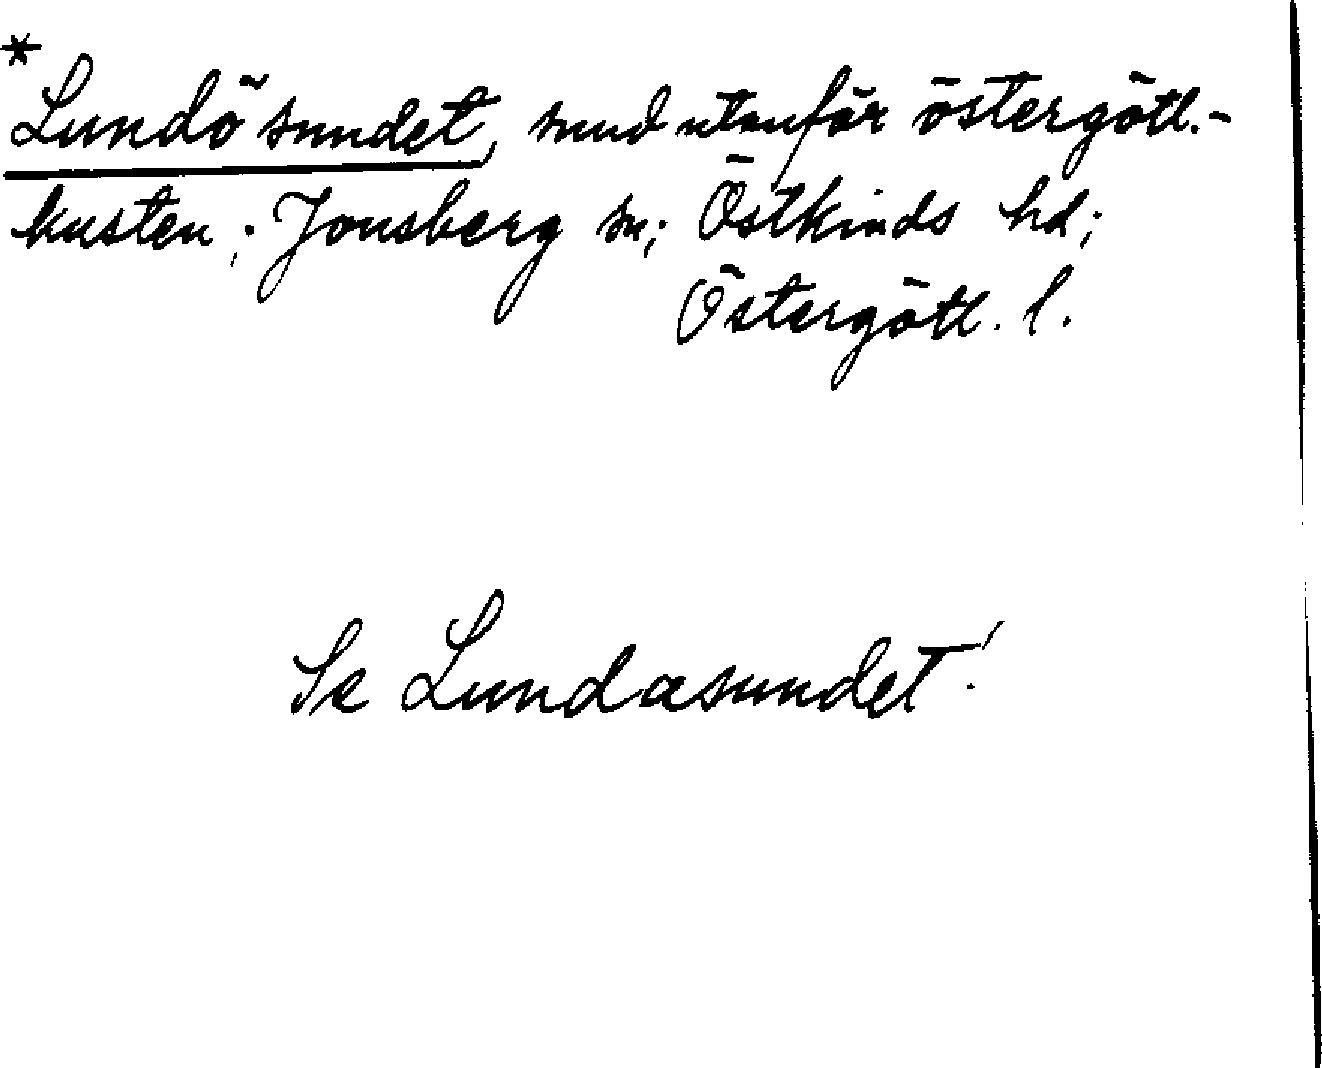 *
Lundösundet, sund utanför östergötl.-
kusten; Jonsberg sn; Östkinds hd;
Östergötl. l.
Se Lundasundet!